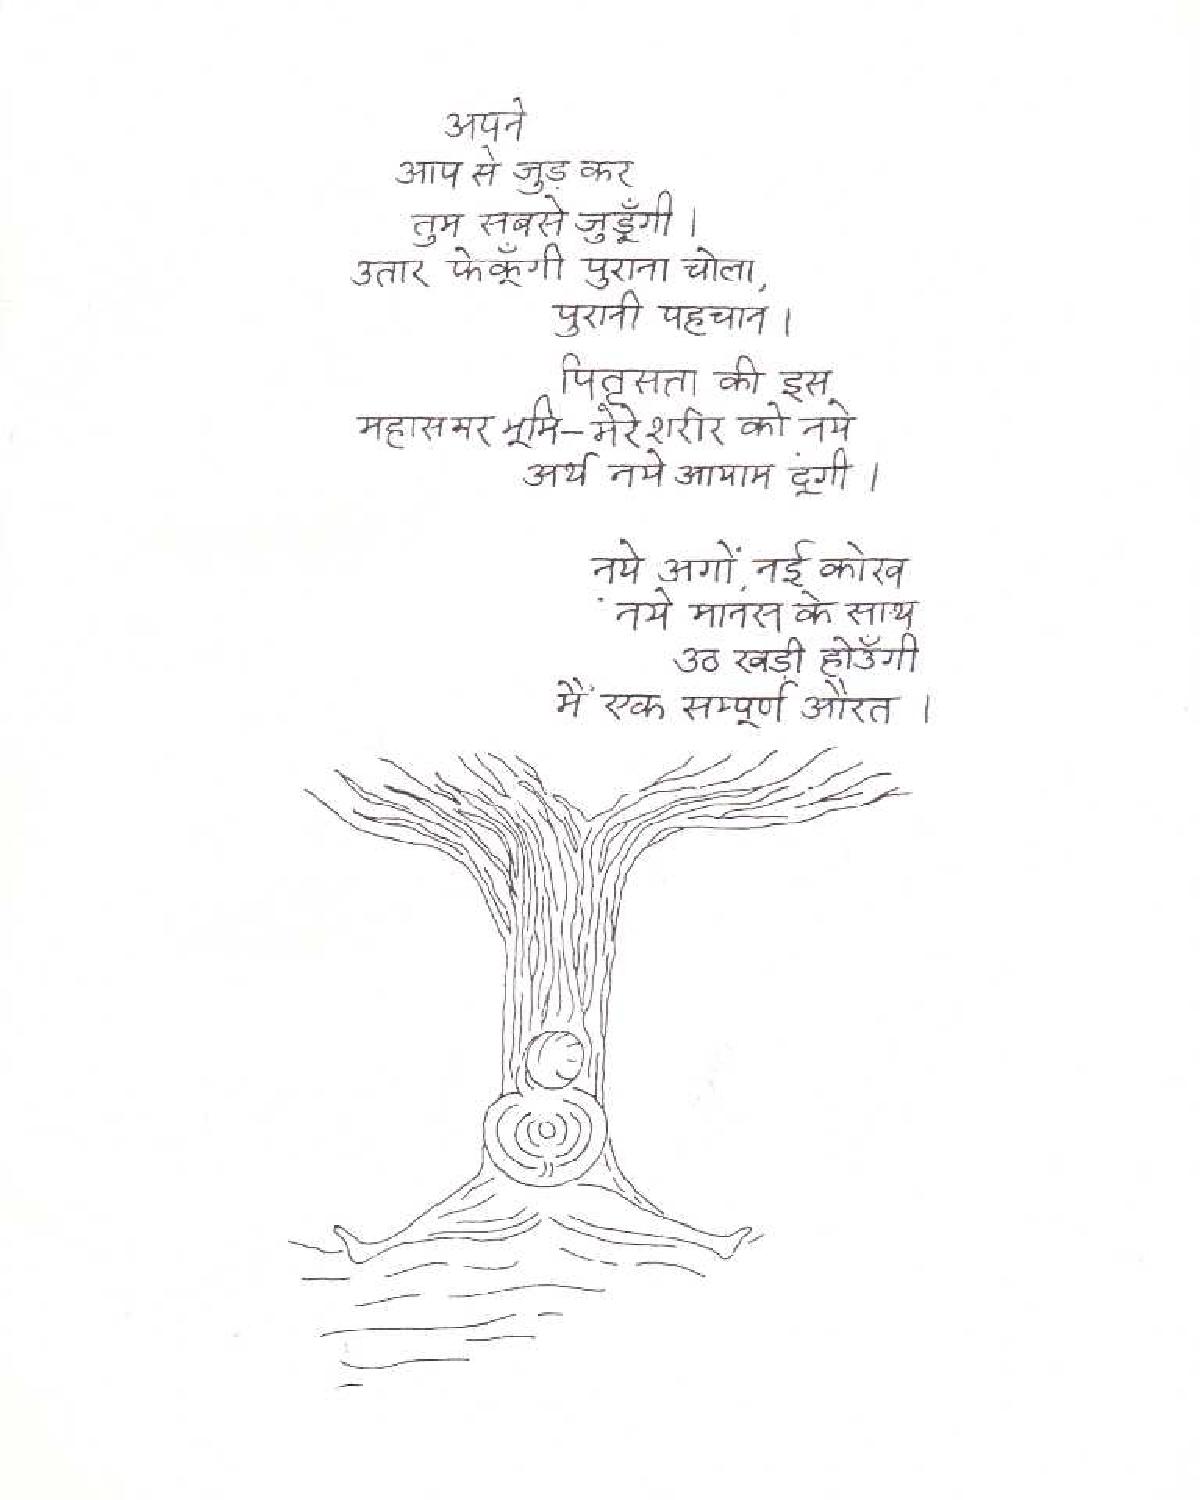 अपने
आप से जुड़ कर
तुम सबसे जुड़ूँगी।
उतार फेकूँगी पुराना चोला,
पुरानी पहचान।
पितृसत्ता की इस
महासमर भूमि-मेरे शरीर को नये
अर्थ नये आयाम दूंगी।
नये अगों, नई कोख
नये मानस के साथ
उठ खड़ी होउँगी
मैं एक सम्पूर्ण औरत।